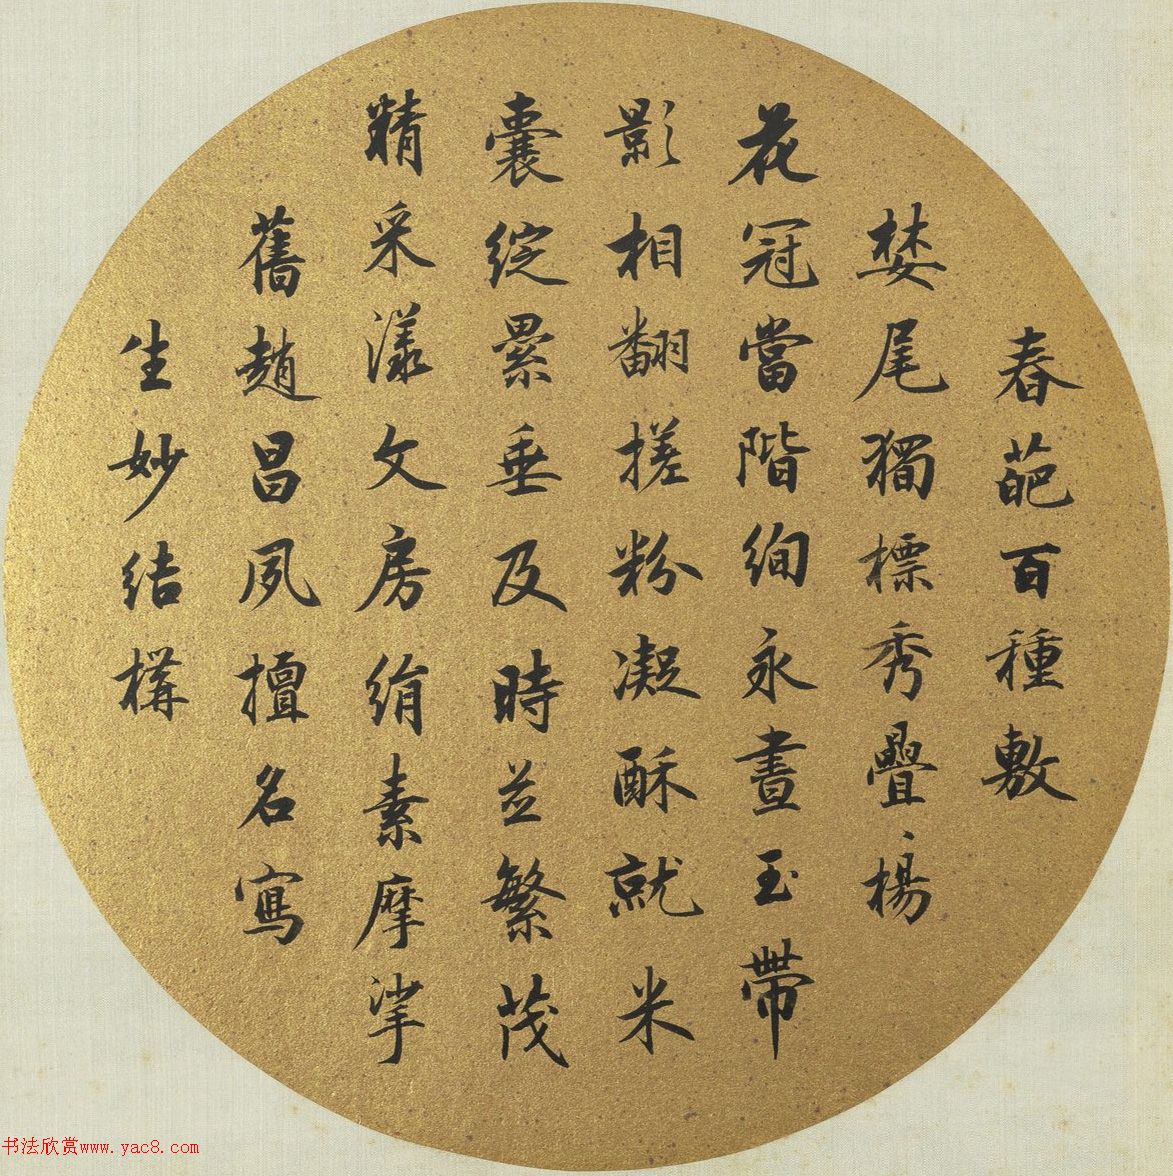 春葩百種敷
婪尾獨標秀疊〻楊
花冠當階絢永晝玉帶
影相翻搓粉凝酥就米
囊綻纍垂及時並繁茂
精采漾文房絹素摩挲
舊趙昌夙擅名寫
生妙結構
书法欣赏www.yac8.com